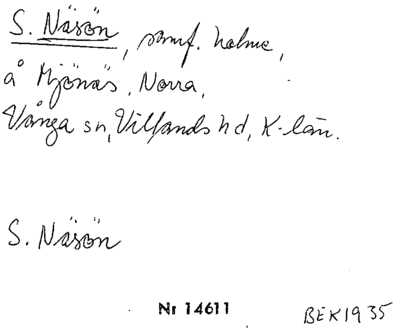 S. Näsön, samf. holme,
å Mjönäs, Norra,
Vånga sn, Villands hd, K-län.
S. Näsön
Nr 14611
BEK1935